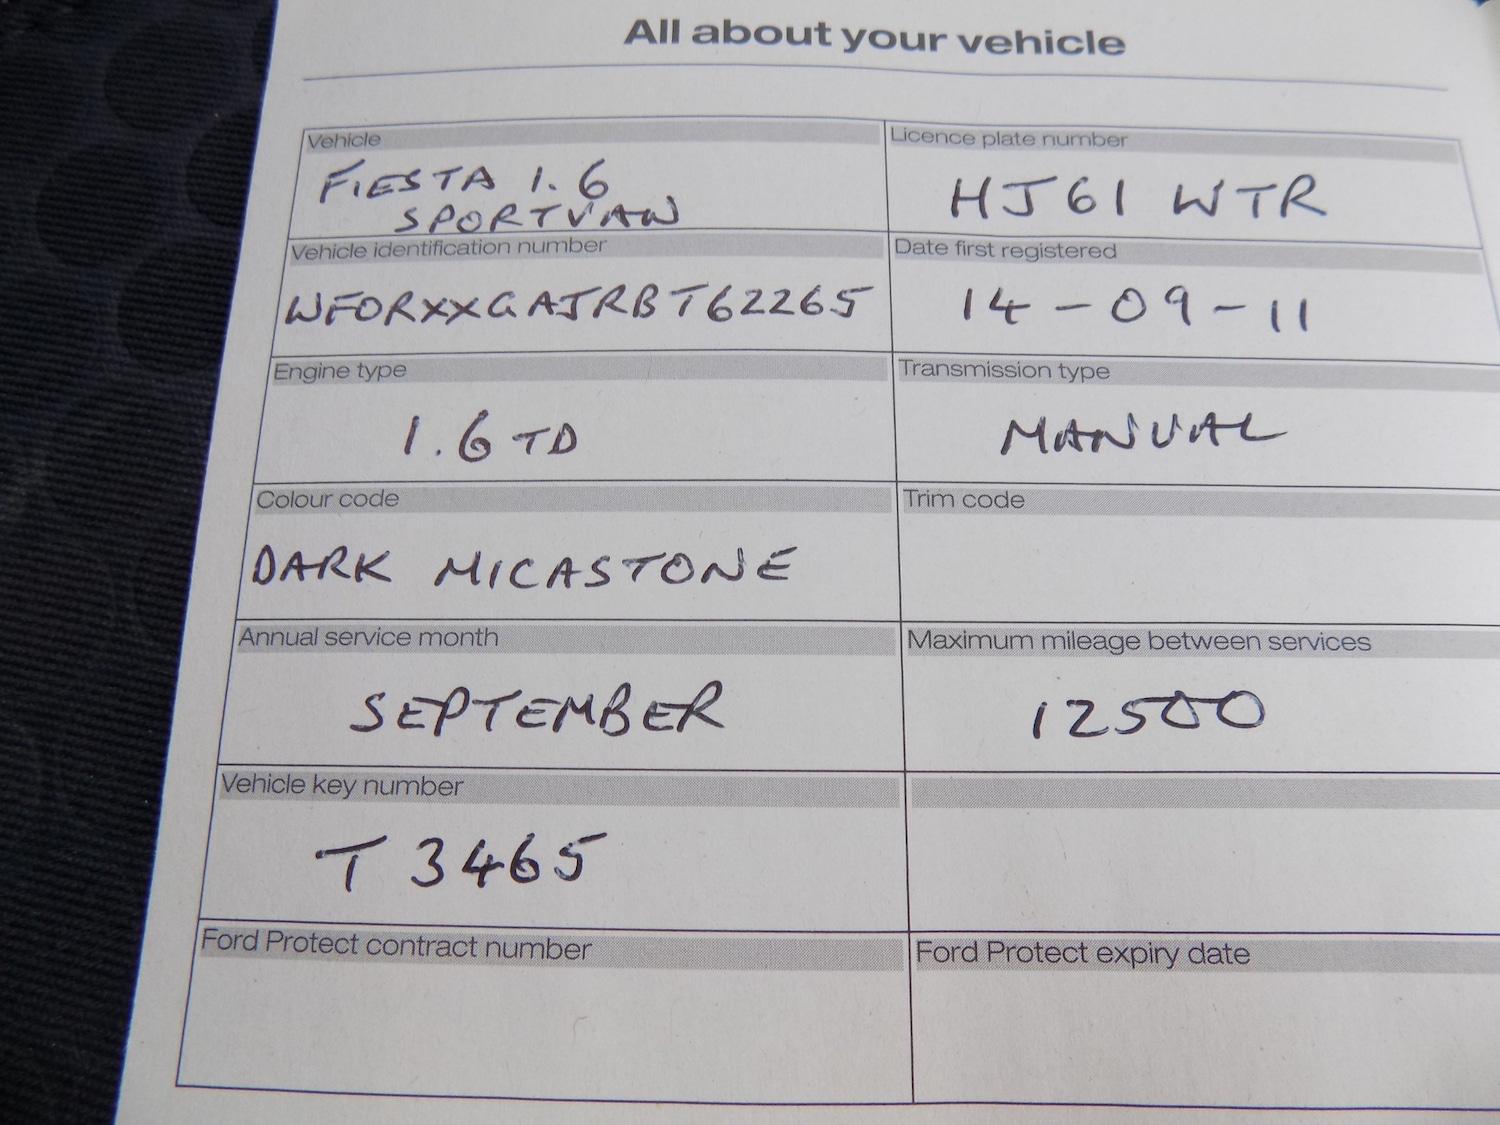 All about your vehicle
Vehicle
FIESTA 1.6
SPORTVAN
Licence plate number
HJ61 WTR
Vehicle identification number
WFORXXGAJRBT62265
Date first registered
14-09-11
Engine type
1.6 TD
Transmission type
MANUAL
Colour code
DARK MICASTONE
Trim code
Annual service month
SEPTEMBER
Maximum mileage between services
12500
Vehicle key number
T 3465
Ford Protect contract number
Ford Protect expiry date